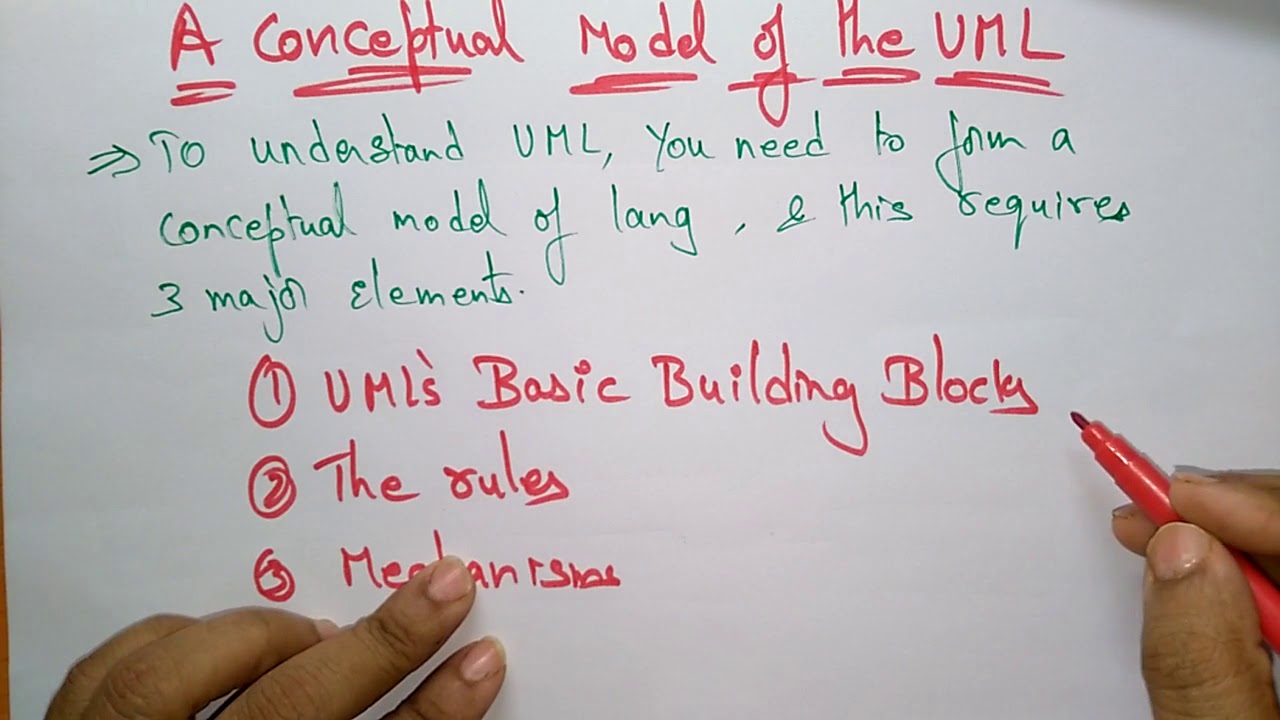 A Conceptual Model of the UML
⇒ To understand UML, You need to form a
conceptual model of lang, & this requires
3 major Elements.
① UML's Basic Building Blocks
② The rules
③ Mechanisms